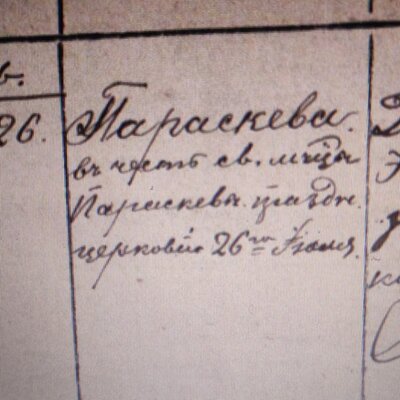 26.
Параскева.
въ честь св. мчцы
Параскевы. праздн.
церковію 26го Іюля.